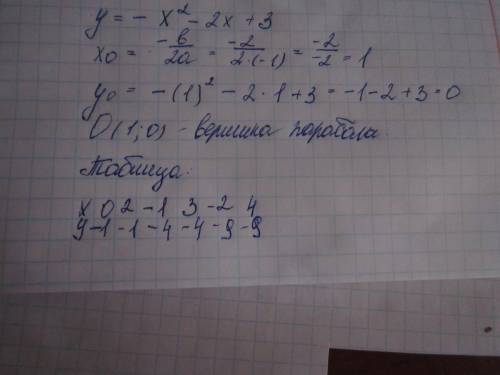 y = - x² - 2x + 3
x₀ = -b/2a = -2/2·(-1) = -2/-2 = 1
y₀ = -(1)² - 2·1 + 3 = -1 - 2 + 3 = 0
O(1;0) - вершина парабола.
Таблица:
x 0 2 -1 3 -2 4
y -1 -1 -4 -4 -9 -9